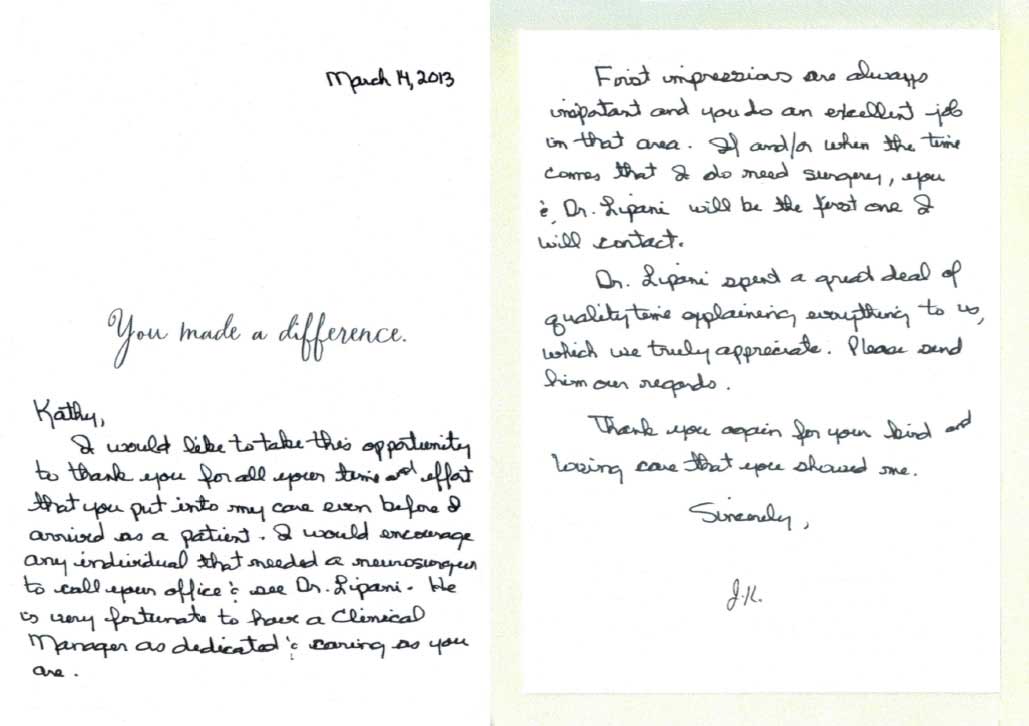 March 14, 2013
You made a difference.
Kathy,
I would like to take this opportunity
to thank you for all your time and effort
that you put into my care even before I
arrived as a patient. I would encourage
any individual that needed a neurosurgeon
to call your office & see Dr. Lipani. He
is very fortunate to have a Clinical
Manager as dedicated & caring as you
are.
First impressions are always
important and you do an excellent job
in that area. If and/or when the time
comes that I do need surgery, you
& Dr. Lipani will be the first one I
will contact.
Dr. Lipani spent a great deal of
quality time explaining everything to us,
which we truly appreciate. Please send
him our regards.
Thank you again for your kind and
loving care that you showed me.
Sincerely,
J.K.